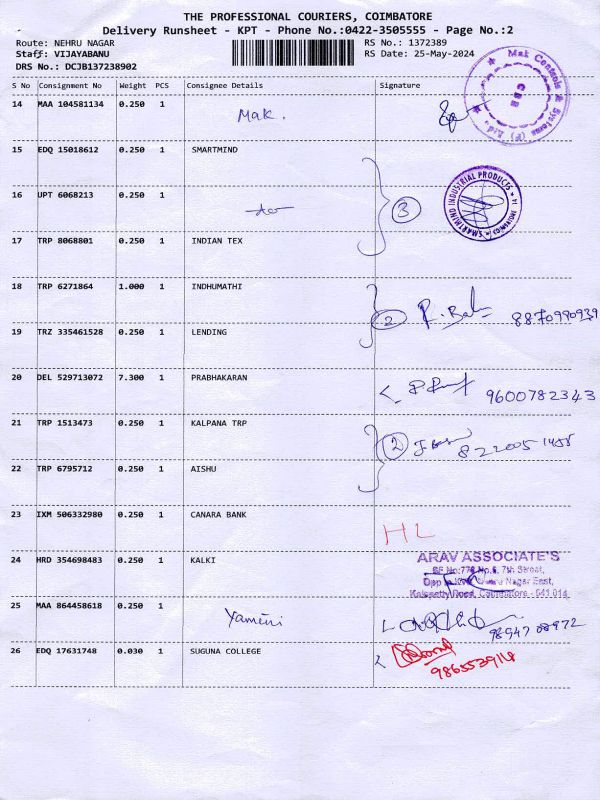 THE PROFESSIONAL COURIERS, COIMBATORE
Delivery Runsheet - KPT - Phone No.:0422-3505555 - Page No.:2
Route: NEHRU NAGAR RS No.: 1372389
Staff: VIJAYABANU RS Date: 25-May-2024
DRS No.: DCJB137238902
S No Consignment No Weight PCS Consignee Details Signature
14 MAA 104581134 0.250 1 Mak.
Mak Controls & Systems (P) Ltd.
CBE
15 EDQ 15018612 0.250 1 SMARTMIND
SMARTMIND INDUSTRIAL PRODUCTS
16 UPT 6068213 0.250 1
3
17 TRP 8068801 0.250 1 INDIAN TEX
18 TRP 6271864 1.000 1 INDHUMATHI
2 8870990939
19 TRZ 335461528 0.250 1 LENDING
20 DEL 529713072 7.300 1 PRABHAKARAN
9600782343
21 TRP 1513473 0.250 1 KALPANA TRP
2
22 TRP 6795712 0.250 1 AISHU
23 IXM 506332980 0.250 1 CANARA BANK
HL
24 HRD 354698483 0.250 1 KALKI
ARAV ASSOCIATE'S
7th Street,
Nagar East,
Coimbatore - 641 014
25 MAA 864458618 0.250 1 Yamini
26 EDQ 17631748 0.030 1 SUGUNA COLLEGE